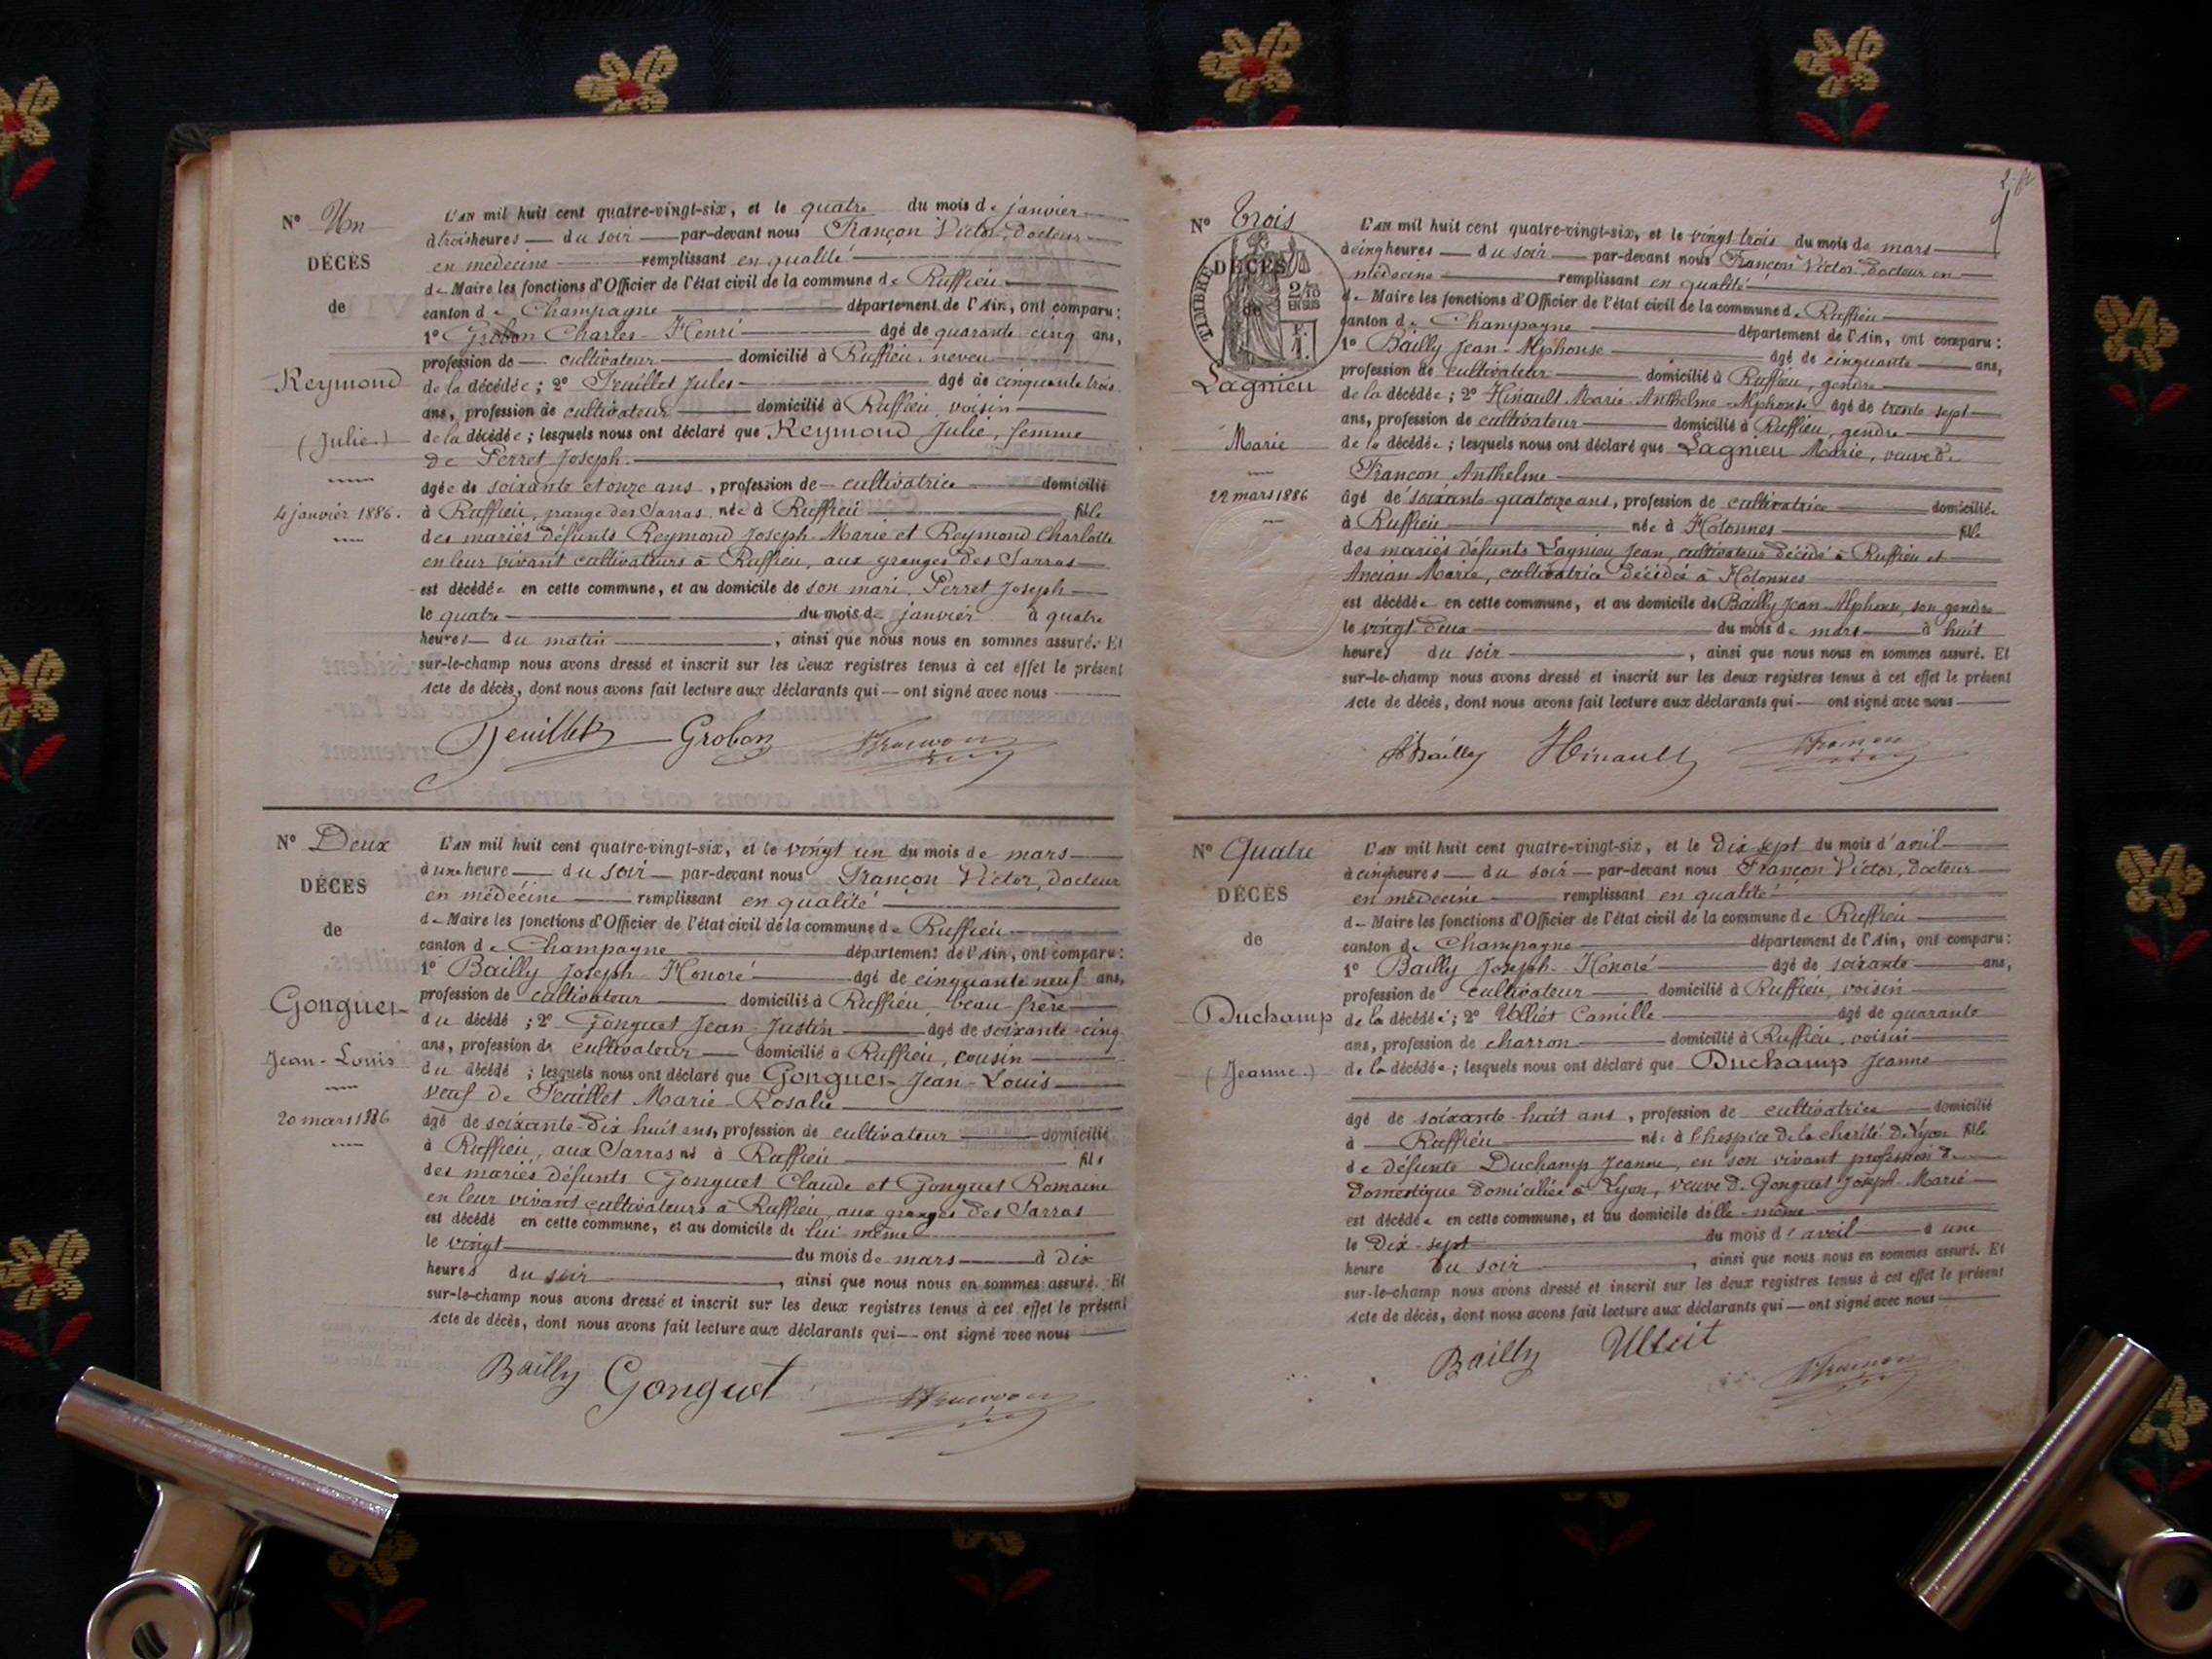 N° Un
DÉCÈS
de
Reymond
(Julie)
4 janvier 1886.
L'AN mil huit cent quatre-vingt-six, et le quatre du mois de janvier
à trois heures du soir par-devant nous Françon Victor, docteur
en médecine remplissant en qualité
de Maire les fonctions d'Officier de l'état civil de la commune de Ruffieu
canton de Champagne département de l'Ain, ont comparu :
1° Grobon Charles-Henri âgé de quarante cinq ans,
profession de cultivateur domicilié à Ruffieu, neveu
de la décédée ; 2° Feuillet Jules âgé de cinquante trois
ans, profession de cultivateur domicilié à Ruffieu, voisin
de la décédée ; lesquels nous ont déclaré que Reymond Julie, femme
de Perret Joseph.
âgée de soixante et onze ans, profession de cultivatrice domicilié
à Ruffieu, grange des Sarras née à Ruffieu fille
des mariés défunts Reymond Joseph-Marie et Reymond Charlotte
en leur vivant cultivateurs à Ruffieu, aux granges des Sarras
est décédée en cette commune, et au domicile de son mari, Perret Joseph
le quatre du mois de janvier à quatre
heures du matin, ainsi que nous nous en sommes assuré. Et
sur-le-champ nous avons dressé et inscrit sur les deux registres tenus à cet effet le présent
Acte de décès, dont nous avons fait lecture aux déclarants qui ont signé avec nous
Feuillet Grobon VFrançon
N° Deux
DÉCÈS
de
Gonguet
Jean-Louis
20 mars 1886
L'AN mil huit cent quatre-vingt-six, et le vingt un du mois de mars
à une heure du soir par-devant nous Françon Victor, docteur
en médecine remplissant en qualité
de Maire les fonctions d'Officier de l'état civil de la commune de Ruffieu
canton de Champagne département de l'Ain, ont comparu :
1° Bailly Joseph-Honoré âgé de cinquante neuf ans,
profession de cultivateur domicilié à Ruffieu, beau-frère
du décédé ; 2° Gonguet Jean-Justin âgé de soixante-cinq
ans, profession de cultivateur domicilié à Ruffieu, cousin
du décédé ; lesquels nous ont déclaré que Gonguet Jean-Louis
veuf de Feuillet Marie-Rosalie
âgé de soixante-dix huit ans, profession de cultivateur domicilié
à Ruffieu, aux Sarras né à Ruffieu fils
des mariés défunts Gonguet Claude et Gonguet Romaine
en leur vivant cultivateurs à Ruffieu, aux granges des Sarras
est décédé en cette commune, et au domicile de lui-même
le vingt du mois de mars à dix
heures du soir, ainsi que nous nous en sommes assuré. Et
sur-le-champ nous avons dressé et inscrit sur les deux registres tenus à cet effet le présent
Acte de décès, dont nous avons fait lecture aux déclarants qui ont signé avec nous
Bailly Gonguet VFrançon
N° Trois
DÉCÈS
de
TIMBRE
2/10
EN SUS
Lagnieu
Marie
22 mars 1886
L'AN mil huit cent quatre-vingt-six, et le vingt trois du mois de mars
à cinq heures du soir par-devant nous Françon Victor, docteur en
médecine remplissant en qualité
de Maire les fonctions d'Officier de l'état civil de la commune de Ruffieu
canton de Champagne département de l'Ain, ont comparu :
1° Bailly Jean-Alphonse âgé de cinquante ans,
profession de cultivateur domicilié à Ruffieu, gendre
de la décédée ; 2° Hinault Marie-Anthelme-Alphonse âgé de trente sept
ans, profession de cultivateur domicilié à Ruffieu, gendre
de la décédée ; lesquels nous ont déclaré que Lagnieu Marie, veuve de
Françon Anthelme
âgé de soixante quatorze ans, profession de cultivatrice domiciliée
à Ruffieu née à Hotonnes fille
des mariés défunts Lagnieu Jean, cultivateur décédé à Ruffieu et
Ancian Marie, cultivatrice décédée à Hotonnes
est décédée en cette commune, et au domicile de Bailly Jean Alphonse, son gendre
le vingt deux du mois de mars à huit
heures du soir, ainsi que nous nous en sommes assuré. Et
sur-le-champ nous avons dressé et inscrit sur les deux registres tenus à cet effet le présent
Acte de décès, dont nous avons fait lecture aux déclarants qui ont signé avec nous
Bailly Hinault VFrançon
N° Quatre
DÉCÈS
de
Duchamp
(Jeanne)
L'AN mil huit cent quatre-vingt-six, et le dix sept du mois d'avril
à cinq heures du soir par-devant nous Françon Victor, docteur
en médecine remplissant en qualité
de Maire les fonctions d'Officier de l'état civil de la commune de Ruffieu
canton de Champagne département de l'Ain, ont comparu :
1° Bailly Joseph-Honoré âgé de soixante ans,
profession de cultivateur domicilié à Ruffieu, voisin
de la décédée ; 2° Ulliet Camille âgé de quarante
ans, profession de charron domicilié à Ruffieu, voisin
de la décédée ; lesquels nous ont déclaré que Duchamp Jeanne
âgé de soixante-huit ans, profession de cultivatrice domicilié
à Ruffieu née à l'hospice de la charité de Lyon fille
de défunte Duchamp Jeanne, en son vivant profession de
domestique domiciliée à Lyon, veuve de Gonguet Joseph-Marie
est décédée en cette commune, et au domicile d'elle-même
le dix-sept du mois d'avril à une
heure du soir, ainsi que nous nous en sommes assuré. Et
sur-le-champ nous avons dressé et inscrit sur les deux registres tenus à cet effet le présent
Acte de décès, dont nous avons fait lecture aux déclarants qui ont signé avec nous
Bailly Ulleit VFrançon